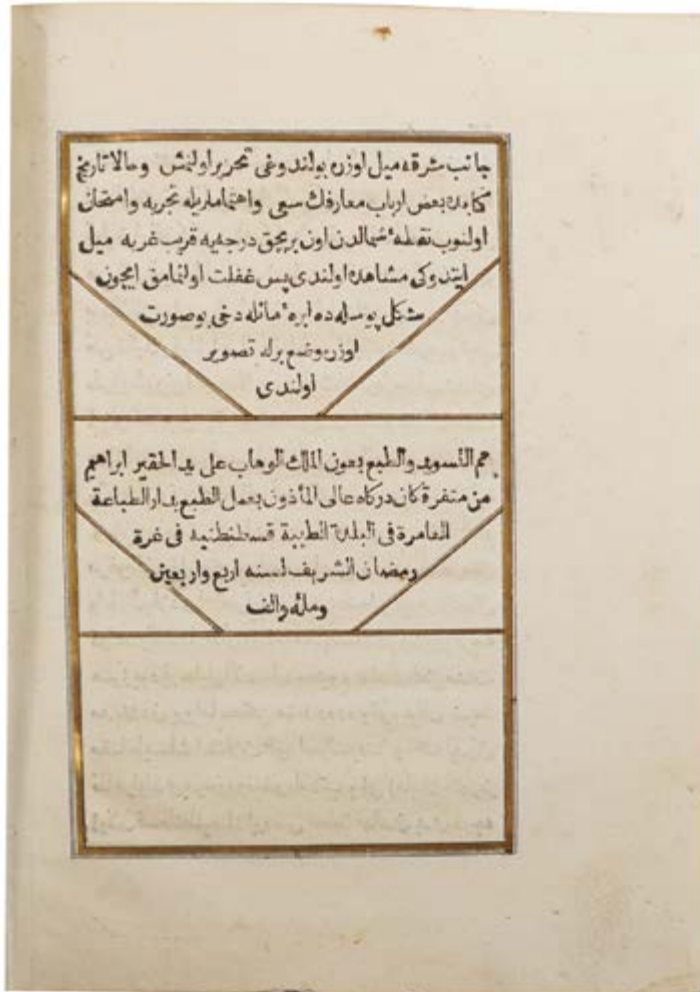 جانب شرقه ميل اوزره بولندوغی تحرير اولنمش وحالا تاريخ
كتابده بعض ارباب معارفك سعی واهتماملريله تجربه وامتحان
اولنوب نقطهٔ شمالدن اون بر بچق درجه‌يه قريب غربه ميل
ايتدوكی مشاهده اولندی پس غفلت اولنمامق ايچون
شكل پوصله ده ابرهٔ مائله دخی بو صورت
اوزره وضع برله تصوير
اولندی
تم التسويد والطبع بعون الملك الوهاب علی يد الحقير ابراهيم
من متفرقة كان درگاه عالی المأذون بعمل الطبع بدار الطباعة
العامرة فی البلدة الطيبة قسطنطنيه فی غرة
رمضان الشريف لسنه اربع واربعين
ومائه والف